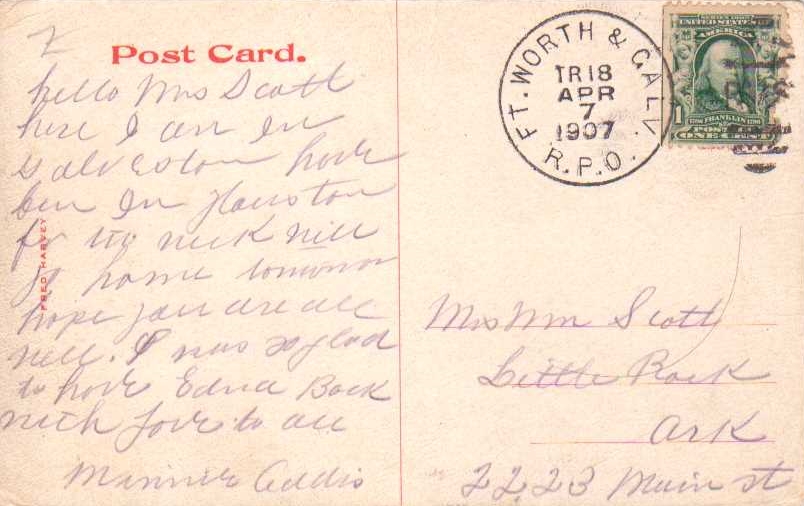 Post Card.
hello Mrs Scott
here I am In
Galveston have
ben In Houston
for the week will
go home tomorrow
hope you are all
well. I was so glad
to have Edna Back
with Love to all
Minnie Addis
FRED HARVEY
FT. WORTH & GALV.
TR 18
APR
7
1907
R.P.O.
SERIES 1902
UNITED STATES OF
AMERICA
1
FRANKLIN
POSTAGE
ONE CENT
Mrs Wm Scott
Little Rock
Ark
2223 Main st